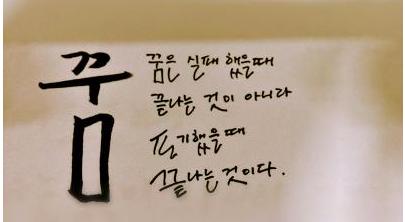 꿈
꿈은 실패 했을때
끝나는 것이 아니라
포기했을때
끝나는것이다.